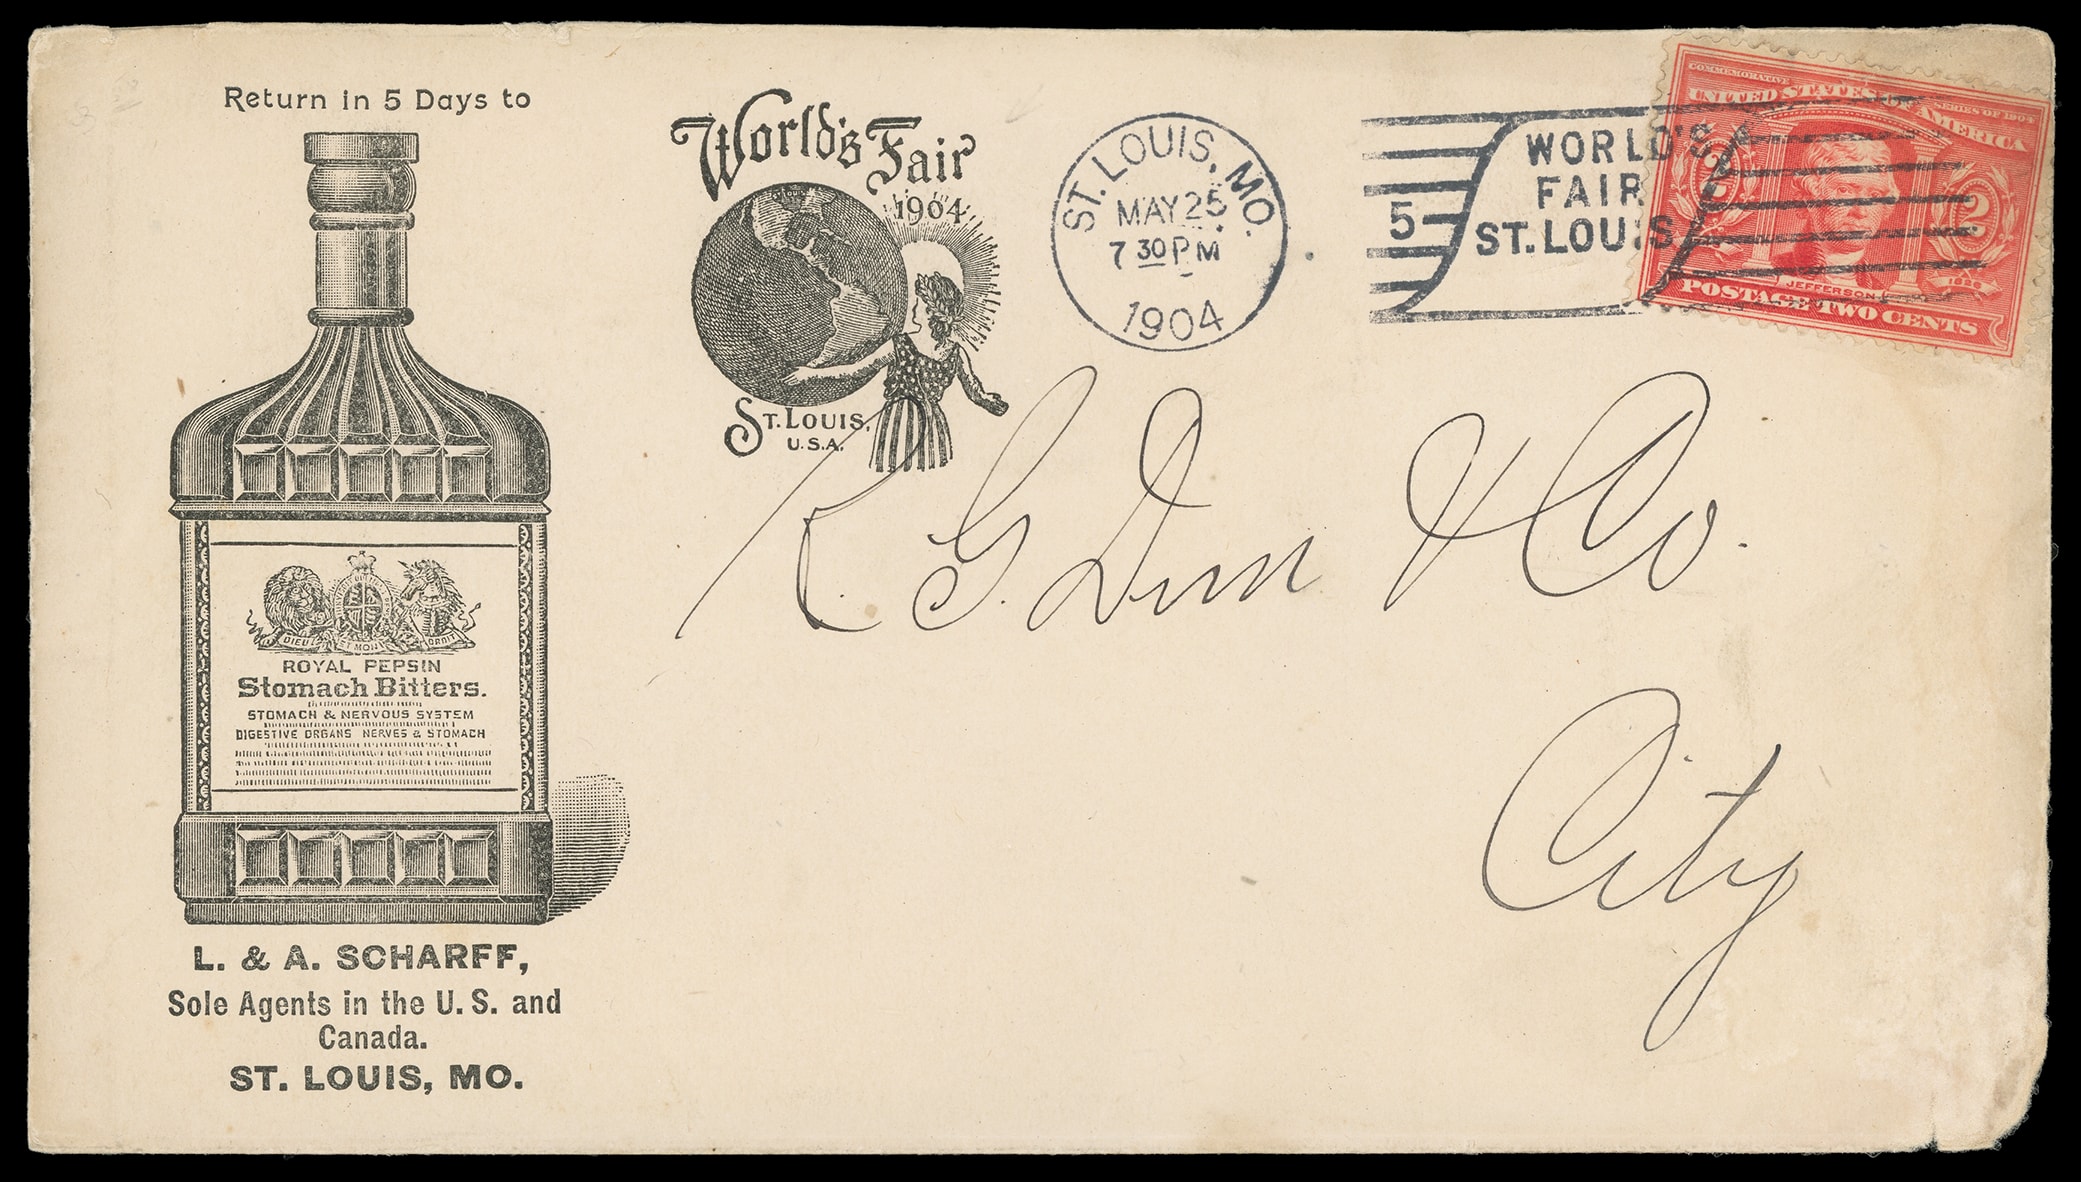 Return in 5 Days to
ROYAL PEPSIN
Stomach Bitters.
STOMACH & NERVOUS SYSTEM
DIGESTIVE ORGANS NERVES & STOMACH
DIEU ET MON DROIT
L. & A. SCHARFF,
Sole Agents in the U. S. and
Canada.
ST. LOUIS, MO.
World's Fair
1904
St Louis
ST. LOUIS,
U.S.A.
ST. LOUIS, MO.
MAY 25
7 30 PM
1904
5
WORLD'S
FAIR
ST. LOUIS
COMMEMORATIVE SERIES OF 1904
UNITED STATES OF AMERICA
2 2
JEFFERSON
1826
POSTAGE TWO CENTS
R. G. Dun & Co.
City